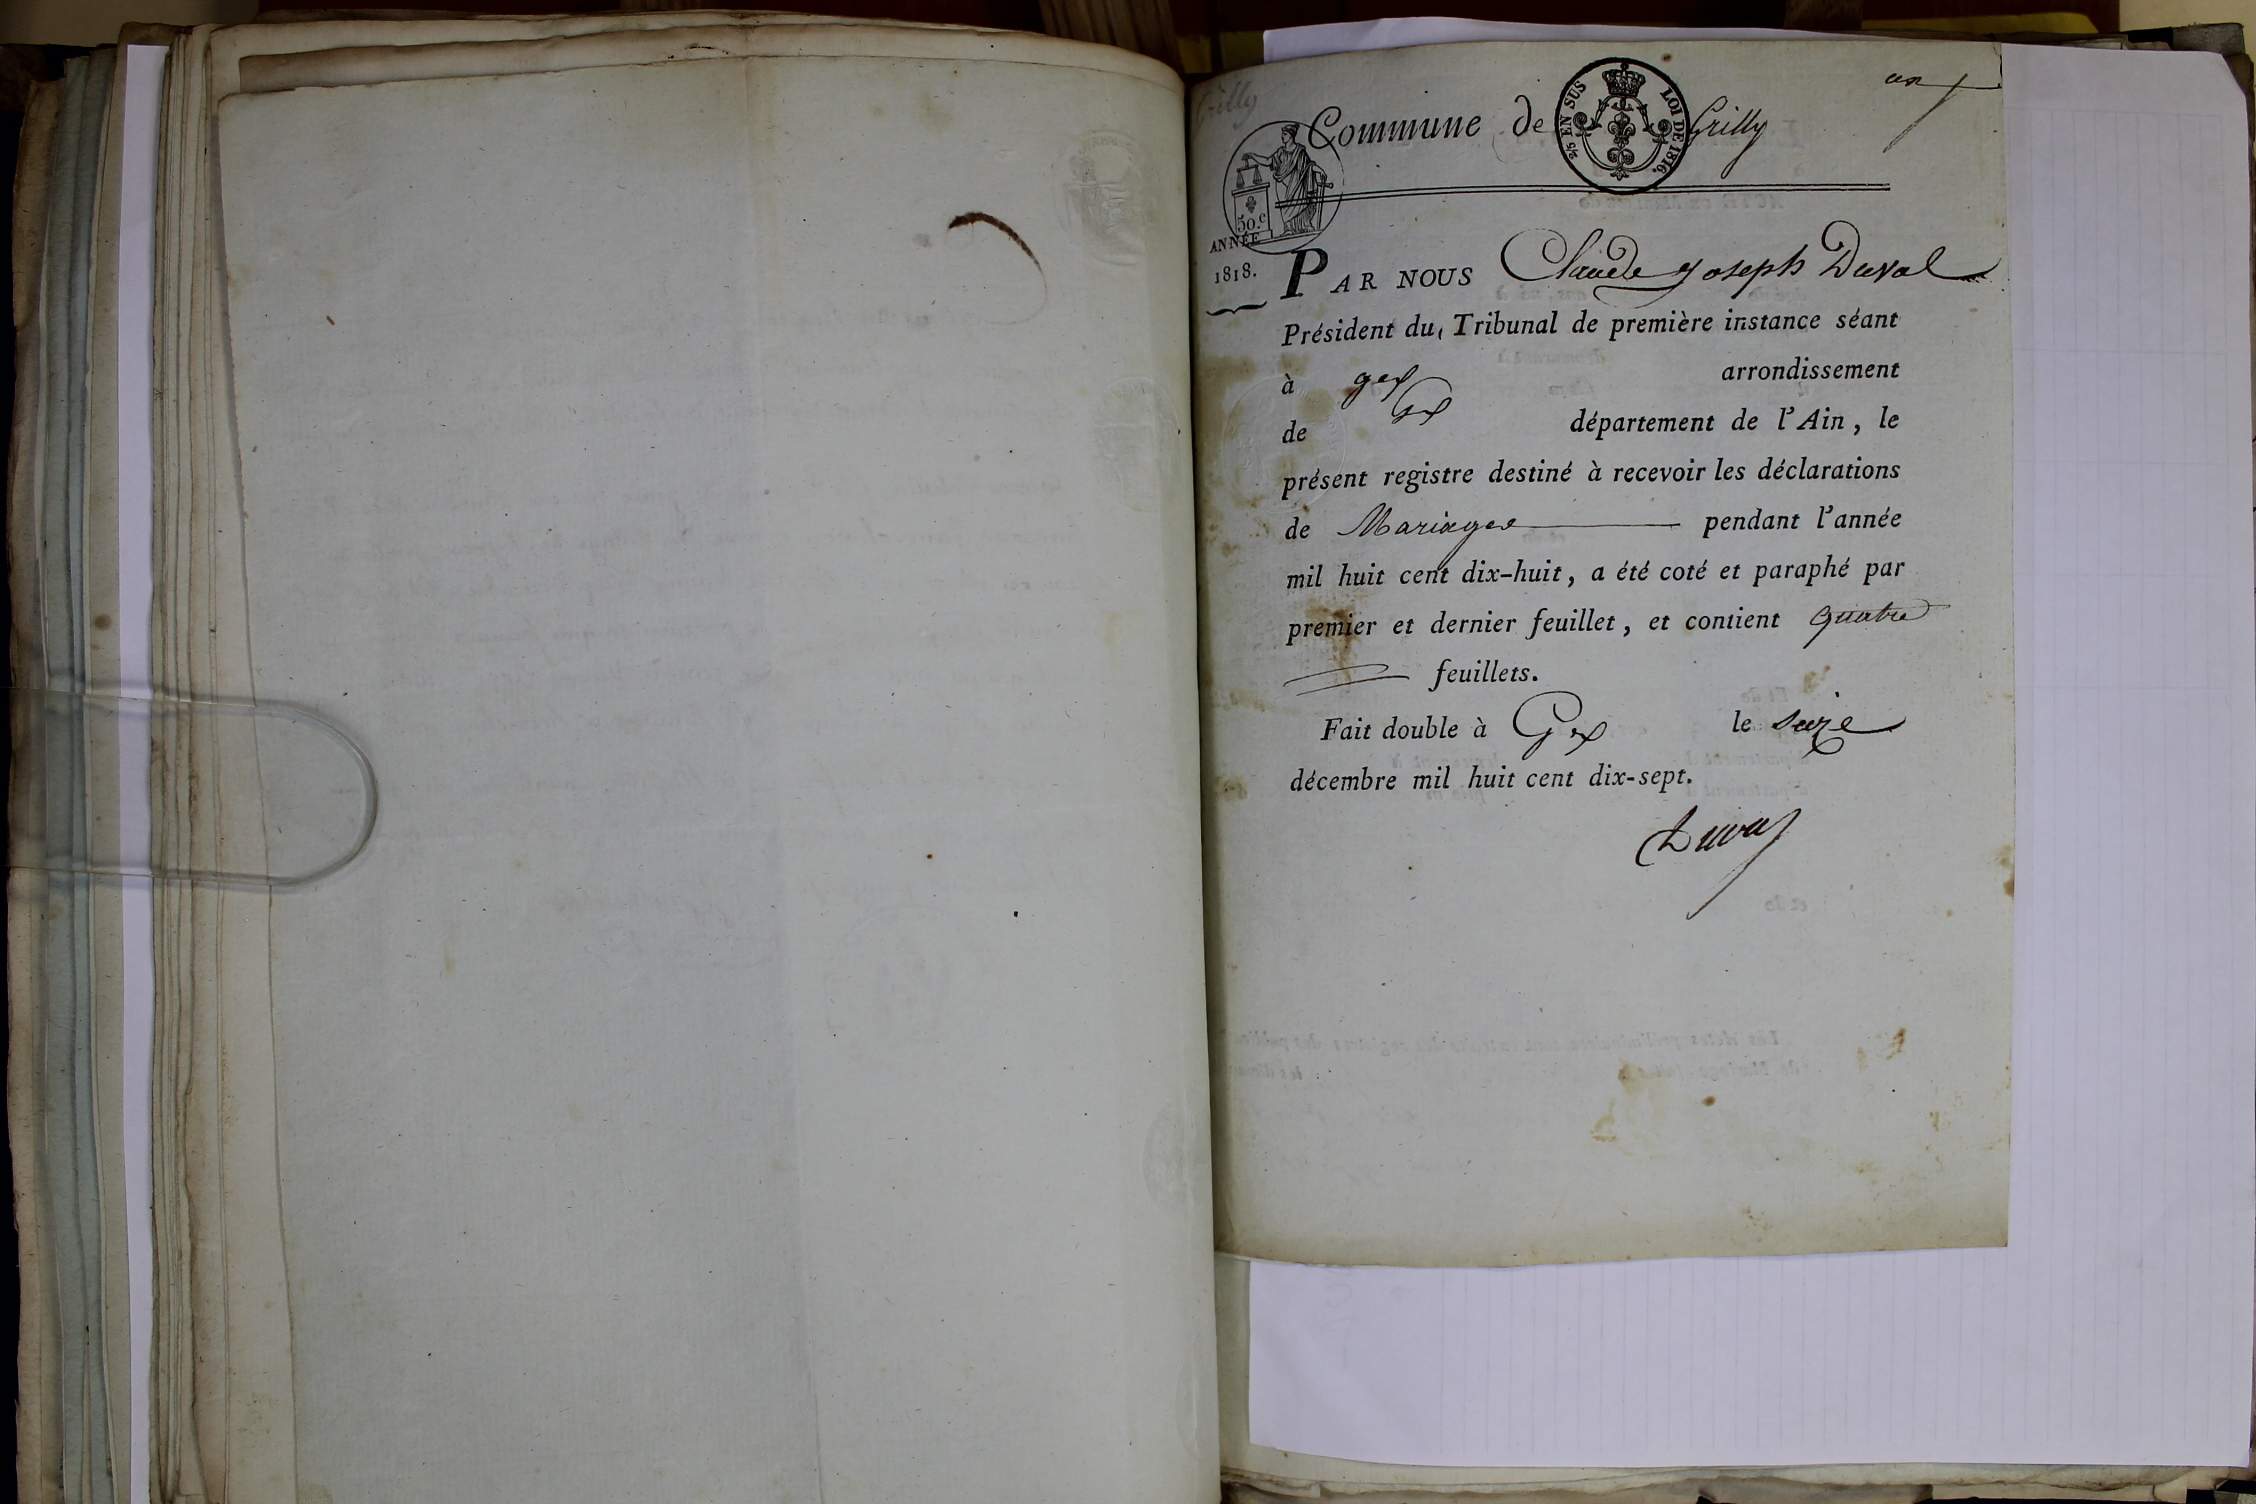 un
Commune de Grilly
2/5 EN SUS LOI DE 1816.
50.c
ANNÉE
1818.
PAR NOUS Claude Joseph Duval
Président du Tribunal de première instance séant
à gex arrondissement
de Gex département de l'Ain, le
présent registre destiné à recevoir les déclarations
de Mariages pendant l'année
mil huit cent dix-huit, a été coté et paraphé par
premier et dernier feuillet, et contient quatre
feuillets.
Fait double à Gex le seize
décembre mil huit cent dix-sept.
Duval